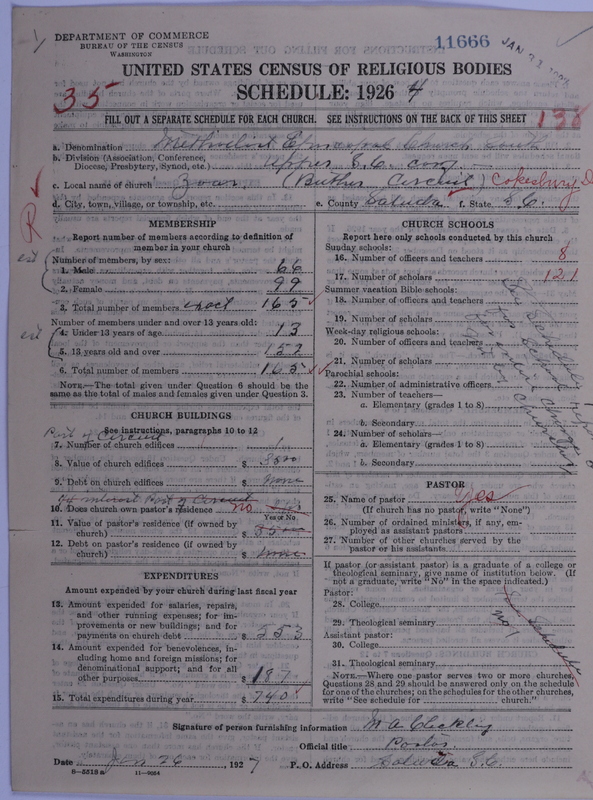 DEPARTMENT OF COMMERCE
BUREAU OF THE CENSUS
WASHINGTON
11666
JAN
UNITED STATES CENSUS OF RELIGIOUS BODIES
SCHEDULE: 1926 4
35
FILL OUT A SEPARATE SCHEDULE FOR EACH CHURCH. SEE INSTRUCTIONS ON THE BACK OF THIS SHEET
138
a. Denomination Methodist Episcopal Church South
b. Division (Association, Conference, Diocese, Presbytery, Synod, etc.) Upper S.C. Conf
c. Local name of church Zoar (Butler Circuit) Cokesbury D
d. City, town, village, or township, etc.
e. County Saluda f. State S.C.
R
MEMBERSHIP
Report number of members according to definition of
member in your church
Number of members, by sex:
est
1. Male 66
2. Female 99
3. Total number of members exact 165
Number of members under and over 13 years old:
est
4. Under 13 years of age 13
5. 13 years old and over 152
6. Total number of members 165
NOTE.—The total given under Question 6 should be the
same as the total of males and females given under Question 3.
CHURCH BUILDINGS
See instructions, paragraphs 10 to 12
Part of Circuit
7. Number of church edifices 1
8. Value of church edifices $ 3500
9. Debt on church edifices $ none
an interest Part of Circuit
10. Does church own pastor's residence no
Yes or No
11. Value of pastor's residence (if owned by
church) $ 3500
12. Debt on pastor's residence (if owned by
church) $ none
EXPENDITURES
Amount expended by your church during last fiscal year
13. Amount expended for salaries, repairs,
and other running expenses; for im-
provements or new buildings; and for
payments on church debt $ 553
14. Amount expended for benevolences, in-
cluding home and foreign missions; for
denominational support; and for all
other purposes $ 187
15. Total expenditures during year $ 740
CHURCH SCHOOLS
Report here only schools conducted by this church
Sunday schools:
16. Number of officers and teachers 8
17. Number of scholars 121
Summer vacation Bible schools:
18. Number of officers and teachers
19. Number of scholars
Week-day religious schools:
20. Number of officers and teachers
21. Number of scholars
Parochial schools:
22. Number of administrative officers
23. Number of teachers—
a. Elementary (grades 1 to 8)
b. Secondary
24. Number of scholars—
a. Elementary (grades 1 to 8)
b. Secondary
PASTOR
25. Name of pastor Yes
(If church has no pastor, write "None")
26. Number of ordained ministers, if any, em-
ployed as assistant pastors
27. Number of other churches served by the
pastor or his assistants
If pastor (or assistant pastor) is a graduate of a college or
theological seminary, give name of institution below. (If
not a graduate, write "No" in the space indicated.)
Pastor:
28. College
29. Theological seminary
Assistant pastor:
30. College
31. Theological seminary
See Schedule
no 1
NOTE.—Where one pastor serves two or more churches,
Questions 28 and 29 should be answered only on the schedule
for one of the churches; on the schedules for the other churches,
write "See schedule for church."
Signature of person furnishing information M A Cleckley
Official title Pastor
Date Jan 26, 1927 P. O. Address Saluda S.C.
8—5518 a 11—9084